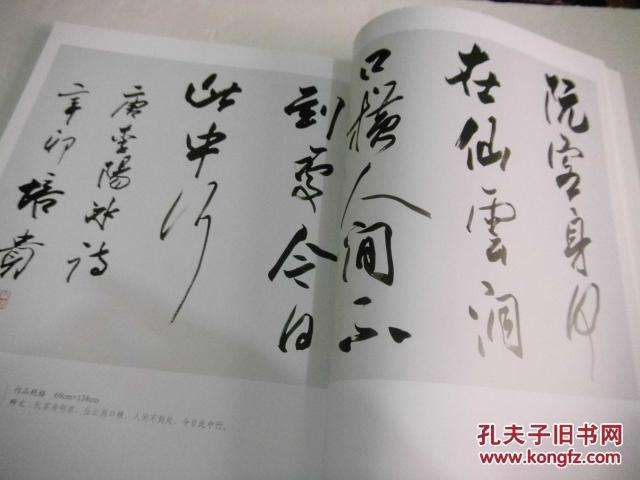 阮客身何
在仙雲洞
口横人间不
到處今日
此中行
唐李陽冰诗
辛卯培贵
作品规格 68cm×138cm
释文 阮客身何在，仙云洞口横。人间不到处，今日此中行。
孔夫子旧书网
www.kongfz.com